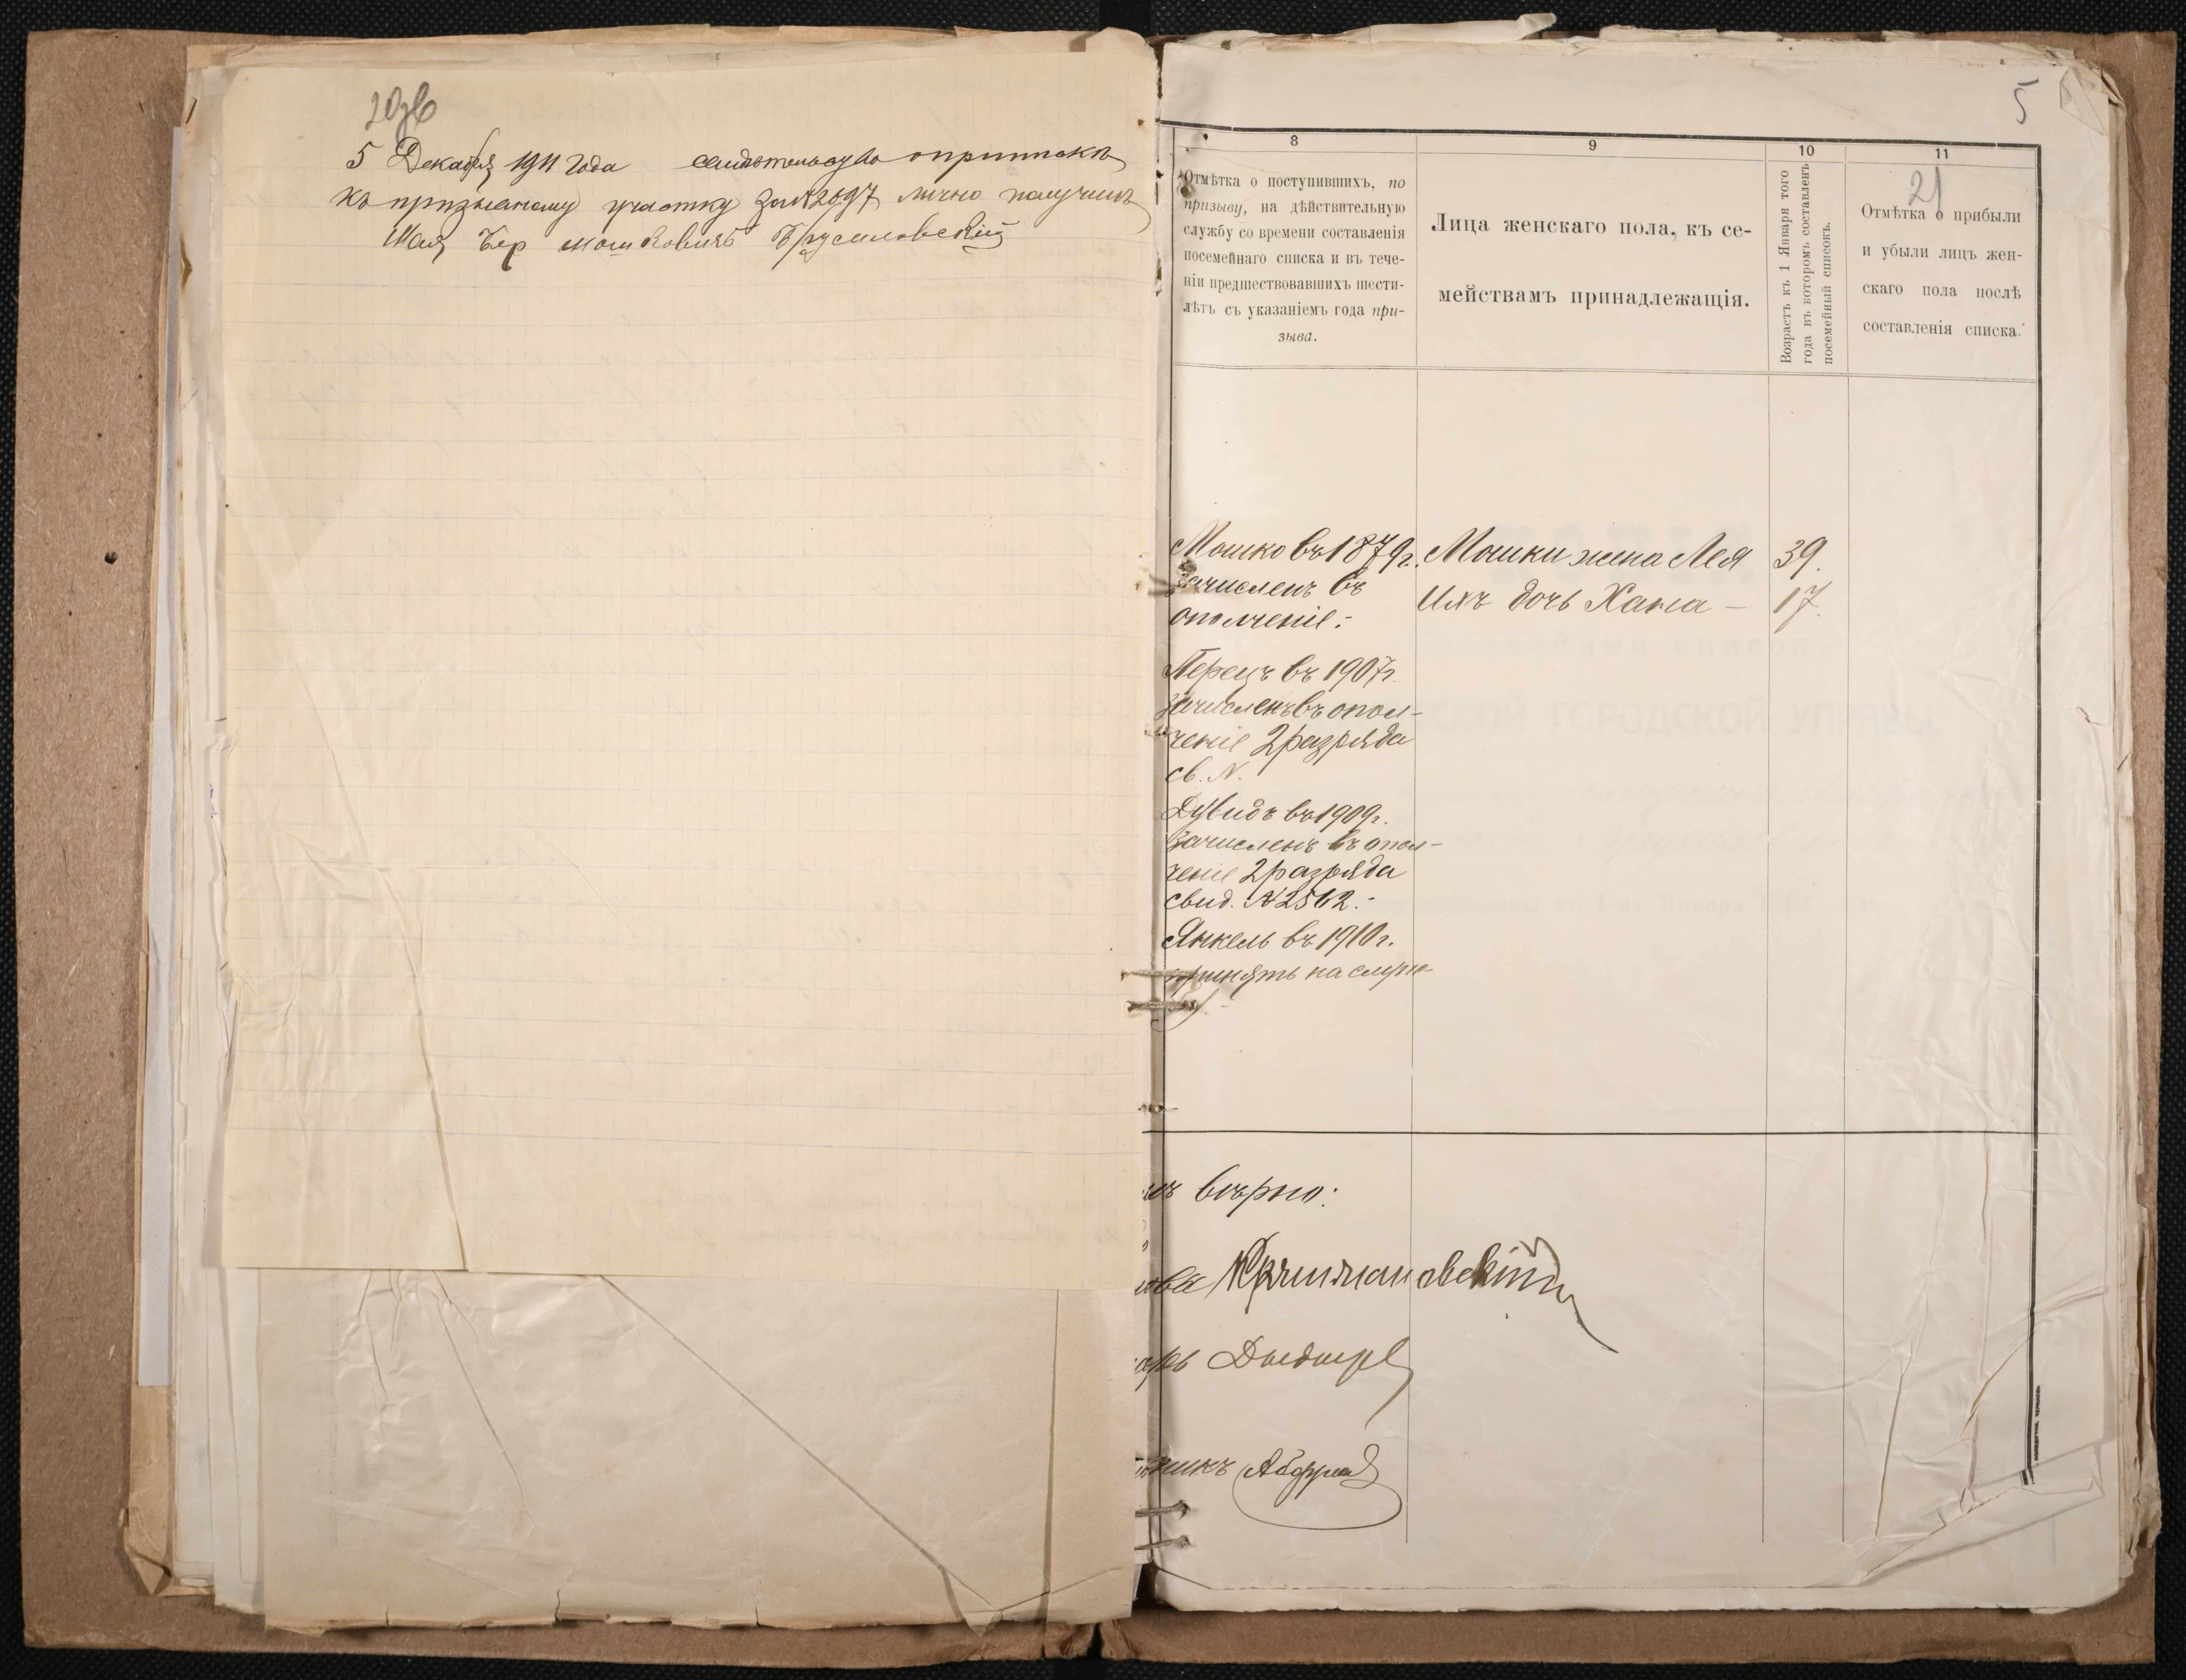 20об
5 Декабря 1911 года свидетельство оприписке
къ призывному участку за №2697 лично получилъ
Шая Бер мошковичъ Брусиловскій
5
21
8
9
10
11
Отмѣтка о поступившихъ, по
призыву, на дѣйствительную
службу со времени составленія
посемейнаго списка и въ тече-
ніи предшествовавшихъ шести-
лѣтъ съ указаніемъ года при-
зыва.
Лица женскаго пола, къ се-
мействамъ принадлежащія.
Возрастъ къ 1 Января того
года въ которомъ составленъ
посемейный списокъ.
Отмѣтка о прибыли
и убыли лицъ жен-
скаго пола послѣ
составленія списка.
Мошко въ 1879г.
зачисленъ въ
ополченіе.-
Перецъ въ 1907г.
зачисленъ въ опол-
ченіе 2 разряда
св. N.
Дувидъ въ 1909г.
зачисленъ въ опол-
ченіе 2 разряда
свид. №2512.-
Янкель въ 1910г.
принятъ на служ-
бу.-
Мошки жена Лея 39.
Ихъ дочь Хана - 17.
вѣрно: